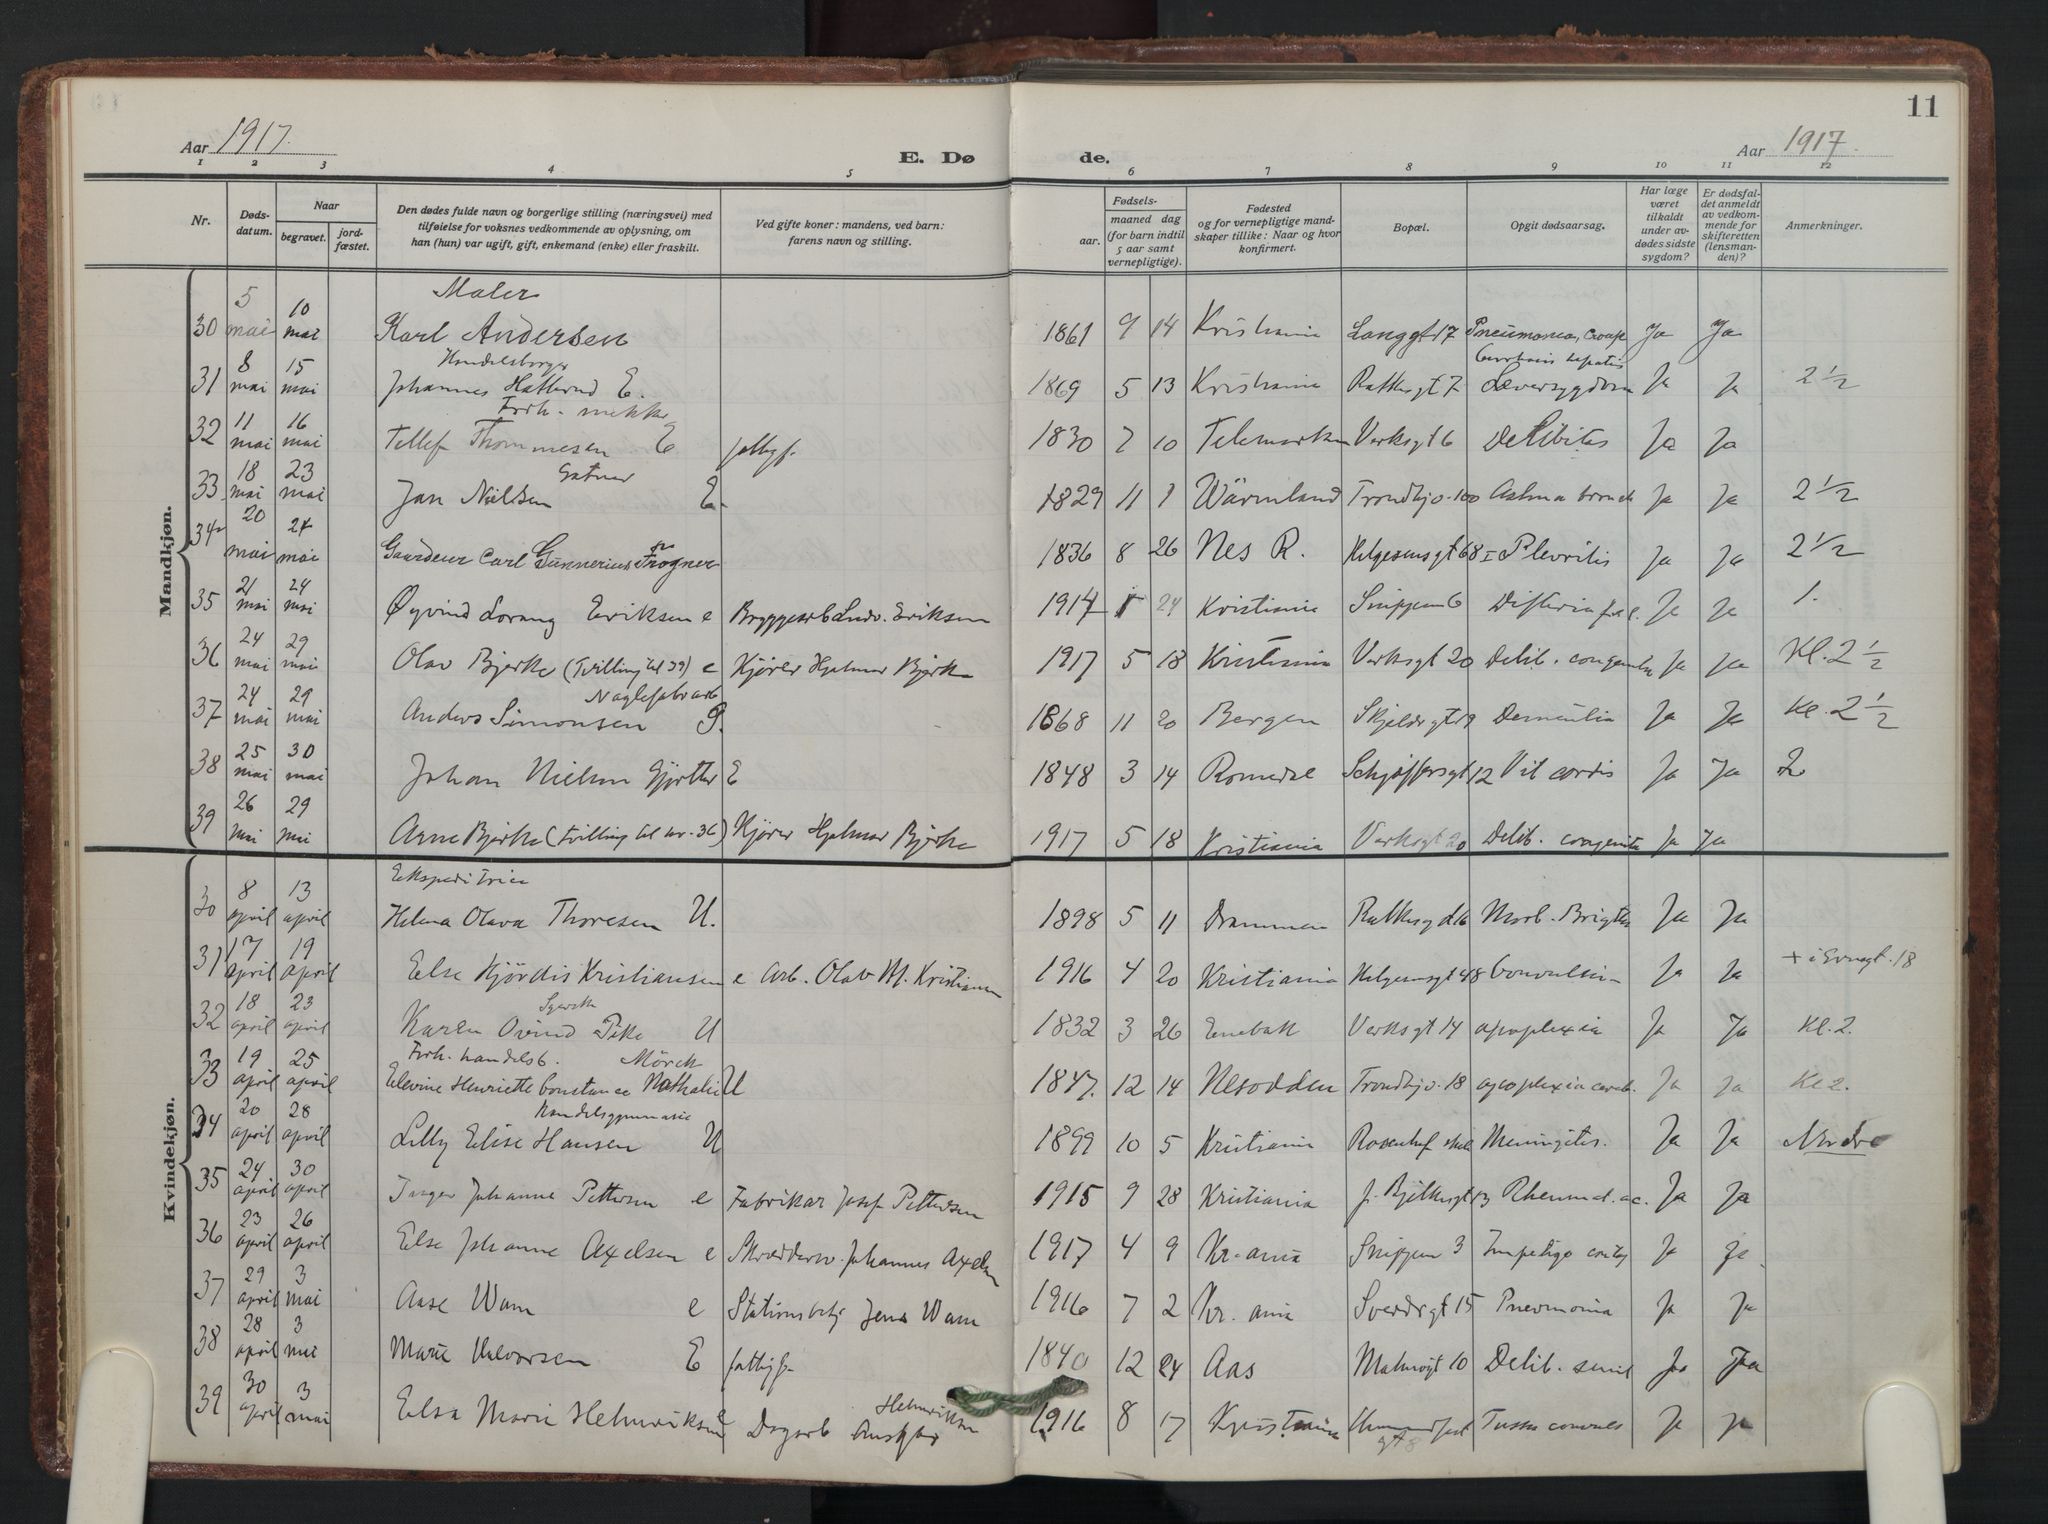 11
Aar 1917.
E. Døde.
Aar 1917.
1 2 3 4 5 6 7 8 9 10 11 12
Nr.
Døds-
datum.
Naar
begravet.
jord-
fæstet.
Den dødes fulde navn og borgerlige stilling (næringsvei) med
tilføielse for voksnes vedkommende av oplysning, om
han (hun) var ugift, gift, enkemand (enke) eller fraskilt.
Ved gifte koner: mandens, ved barn:
farens navn og stilling.
Fødsels-
aar.
maaned dag
(for barn indtil
5 aar samt
vernepligtige).
Fødested
og for vernepligtige mand-
skaper tillike: Naar og hvor
konfirmert.
Bopæl.
Opgit dødsaarsag.
Har læge
været
tilkaldt
under av-
dødes sidste
sygdom?
Er dødsfal-
det anmeldt
av vedkom-
mende for
skifteretten
(lensman-
den)?
Anmerkninger.
Mandkjøn.
Maler
30 5 mai 10 mai Karl Andersen 1861 9 14 Kristiania Langgt 17 Pneumonia, Croup Ja Ja
31 8 mai 15 mai Johannes E. 1869 5 13 Kristiania Rathkesgt 7 Leversygdom Ja Ja 2 1/2
Forh. snekker
32 11 mai 16 mai Tellef Thommesen E fattigf. 1830 7 10 Telemarken Verksgt 6 Ja Ja
33 18 mai 23 mai Jan Nielsen E. 1829 11 1 Wärmland Trondhjv. 100 Astma bronch Ja Ja 2 1/2
34 20 mai 24 mai Gaardeier Carl Gunnerius Frogner 1836 8 26 Nes R. Helgesensgt 68 I Plevritis Ja Ja 2 1/2
35 21 mai 24 mai Øyvind Lorang Eriksen e Bryggearb Ludv. Eriksen 1914 1 24 Kristiania Snippen 6 Difteria Ja Ja 1.
36 24 mai 29 mai Olav Bjerke (Tvilling til 39) e Kjører Hjalmar Bjerke 1917 5 18 Kristiania Verksgt 20 Debil. congenita Ja Ja Kl. 2 1/2
Naglefabrarb
37 24 mai 29 mai Anders Simonsen 1868 11 20 Bergen Dementia Ja Ja Kl. 2 1/2
38 25 mai 30 mai Johan Nielsen Gjørtler E 1848 3 14 Romedal Schjøffersgt 12 Vit cordis Ja Ja 2
39 26 mai 29 mai Arne Bjerke (tvilling til nr. 36) Kjører Hjalmar Bjerke 1917 5 18 Kristiania Verksgt 20 Debil. congenita Ja Ja
Kvindekjøn.
Ekspeditrice
30 8 april 13 april Helena Olava Thoresen U. 1898 5 11 Drammen Morb. Brigtii Ja Ja
31 17 april 19 april Else Hjørdis Kristiansen e Arb. Olav M. Kristiansen 1916 4 20 Kristiania Helgesensgt 48 Ja Ja
32 18 april 23 april Karen U 1832 3 26 Enebak Verksgt 14 apoplexia Ja Ja Kl. 2.
Forh. handelsb. Mörch
33 19 april 25 april Elevine Henriette Constance Nathalie U 1847. 12 14 Nesodden Trondhjv. 18 apoplexia cereb. Ja Ja Kl 2.
Handelsgymnasie
34 20 april 28 april Lilly Elise Hansen U 1899 10 5 Kristiania Rosenhof Meningitis. Ja Ja Nordre
35 24 april 30 april Inger Johanne Pettersen e Fabrikar Josef Pettersen 1915 9 28 Kristiania J. Bjelkesgt 13 Rheumat. ac. Ja Ja
36 23 april 26 april Else Johanne Axelsen e Skræddersv. Johannes Axelsen 1917 4 9 Kr.ania Snippen 3 Impetigo contag Ja Ja
37 29 april 3 mai Aase Wam e Stationsbetj Jens Wam 1916 7 2 Kr. ania Sverdrgt 15 Pnevmonia Ja Ja
38 28 april 3 mai Marie Halvorsen E fattigf. 1840 12 24 Aas Malmøgt 10 Debil. senil Ja Ja
39 30 april 3 mai Elsa Marie Helmriksen e Dagarb Ansgar Helmriksen 1916 8 17 Kristiania Tussis convuls Ja Ja